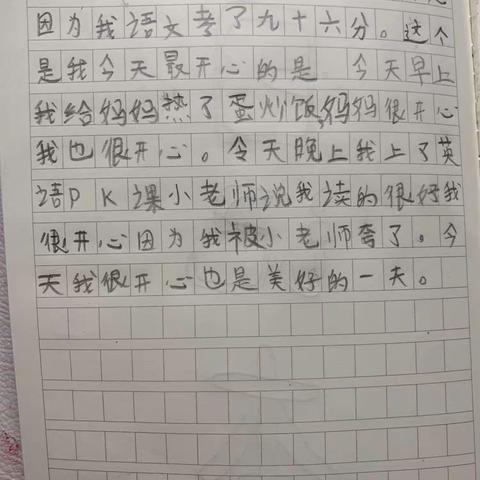 因为我语文考了九十六分。这个
是我今天最开心的是 今天早上
我给妈妈热了蛋炒饭,妈妈很开心
我也很开心。今天晚上我上了英
语PK课小老师说我读的很好我
很开心因为我被小老师夸了。今
天我很开心也是美好的一天。